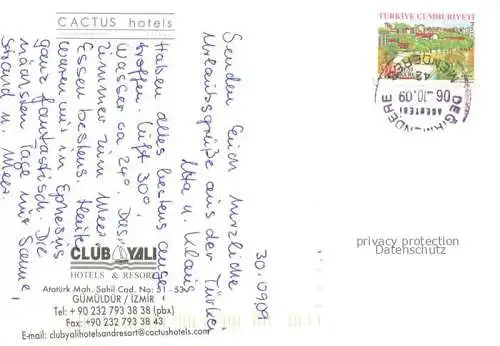 CACTUS hotels
TÜRKİYE CUMHURİYETİ
06.10.09
DEĞİRMENDERE
30.09.09
Senden Euch herzliche
Urlaubsgrüße aus der Türkei
Uta u. Klaus
Haben alles bestens ange-
troffen. Luft 30°,
Wasser ca 24°. Das
Zimmer zum Meer
Essen bestens. Heute
waren wir in Ephesus
ganz fantastisch. Die
nächsten Tage nur Sonne
Strand u. Meer.
CLUB YALI
HOTELS & RESORT
Atatürk Mah. Sahil Cad. No: 51 - 53
GÜMÜLDÜR / İZMİR
Tel: + 90 232 793 38 38 (pbx)
Fax: +90 232 793 38 43
E-mail: clubyalihotelsandresort@cactushotels.com
privacy protection
Datenschutz